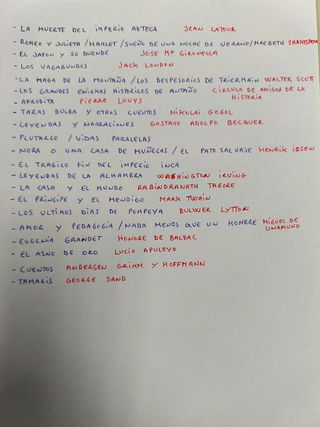 - LA MUERTE DEL IMPERIO AZTECA JEAN LATOUR
- ROMEO Y JULIETA / HAMLET / SUEÑO DE UNA NOCHE DE VERANO / MACBETH SHAKESPEARE
- EL JAPON Y SU DUENDE JOSE Mª GIRONELLA
- LOS VAGABUNDOS JACK LONDON
- LA MAGA DE LA MONTAÑA / LOS DESPOSORIOS DE TRIERMAIN WALTER SCOTT
- LOS GRANDES ENIGMAS HISTORICOS DE ANTAÑO CIRCULO DE AMIGOS DE LA HISTORIA
- AFRODITA PIERRE LOUYS
- TARAS BULBA Y OTROS CUENTOS NIKOLAI GOGOL
- LEYENDAS Y NARRACIONES GUSTAVO ADOLFO BECQUER
- PLUTARCO / VIDAS PARALELAS
- NORA O UNA CASA DE MUÑECAS / EL PATO SALVAJE HENRIK IBSEN
- EL TRAGICO FIN DEL IMPERIO INCA
- LEYENDAS DE LA ALHAMBRA WASHINGTON IRVING
- LA CASA Y EL MUNDO RABINDRANATH TAGORE
- EL PRINCIPE Y EL MENDIGO MARK TWAIN
- LOS ULTIMOS DIAS DE POMPEYA BULWER LYTTON
- AMOR Y PEDAGOGIA / NADA MENOS QUE UN HOMBRE MIGUEL DE UNAMUNO
- EUGENIA GRANDET HONORE DE BALZAC
- EL ASNO DE ORO LUCIO APULEYO
- CUENTOS ANDERSEN GRIMM Y HOFFMANN
- TAMARIS GEORGE SAND